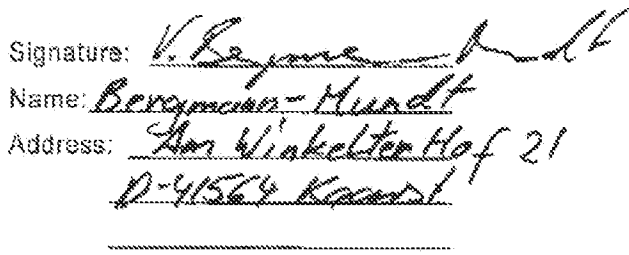 Signature: V. Bergmann-Mundt
Name: Bergmann-Mundt
Address: Am Winkelter Hof 21
D-41564 Kaarst